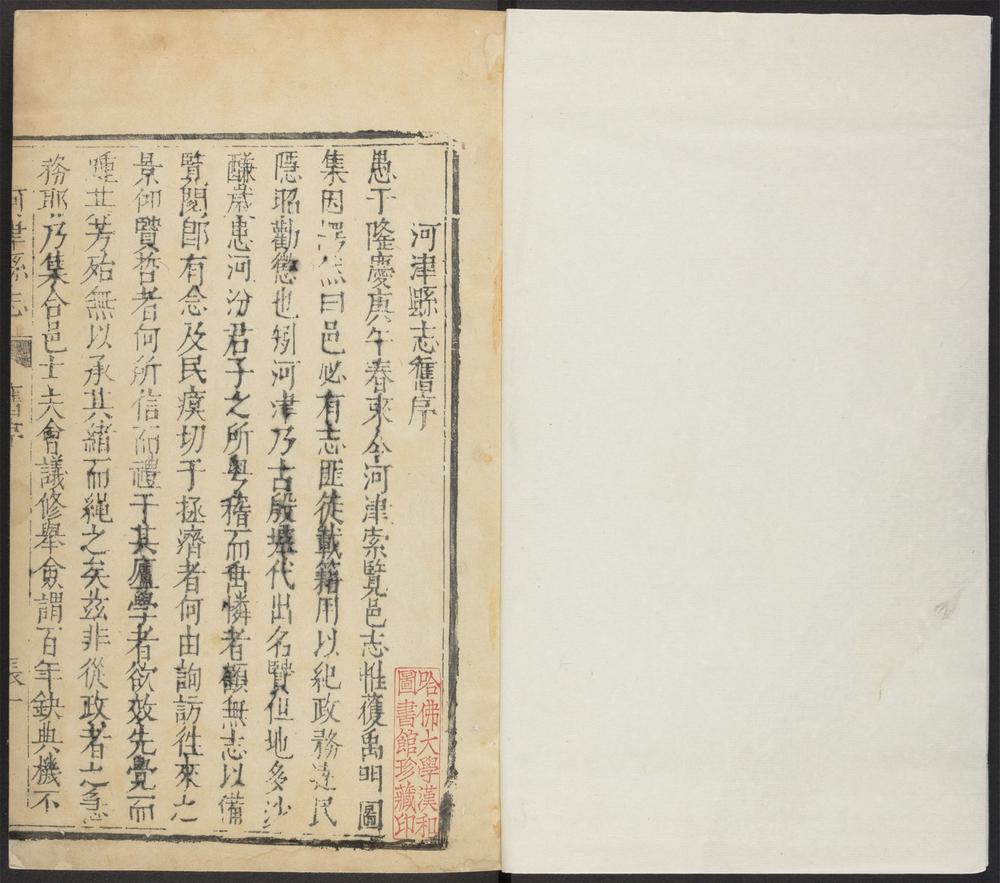 河津縣志舊序
愚于隆慶庚午春來令河津索覽邑志惟獲禹門圖
集因愕然曰邑必有志匪徒載籍用以紀政務達民
隱昭勸懲也矧河津乃古殷墟代出名賢但地多沙
鹻歲患河汾君子之所粤稽而垂憐者顧無志以備
覽閱卽有念及民瘼切于拯濟者何由詢訪徃來之
景仰賢哲者何所信而禮于其廬學者欲效先覺而
踵其芳殆無以承其緒而繩之矣兹非從政者之急
務耶乃集合邑士夫會議修舉僉謂百年缺典機不
河津縣志
舊序
哈佛大學漢和
圖書館珍藏印